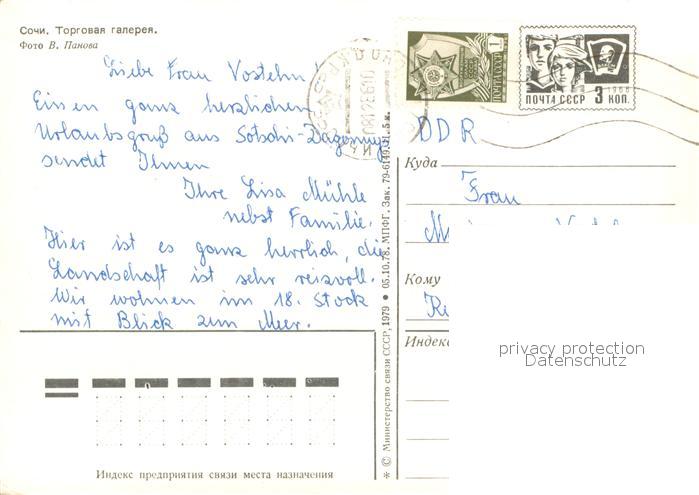 Сочи. Торговая галерея.
Фото В. Панова
Liebe Frau Vostehn!
Einen ganz herzlichen
Urlaubsgruß aus Sotschi-Dagomys
sendet Ihnen
Ihre Lisa Mühle
nebst Familie.
Hier ist es ganz herrlich, die
Landschaft ist sehr reizvoll.
Wir wohnen im 18. Stock
mit Blick zum Meer.
Индекс предприятия связи места назначения
* © Министерство связи СССР, 1979 ● 05.10.78. МПФГ. Зак. 79-6149. 51. 5 к.
1
ПОЧТА СССР 3 КОП.
1966
DDR
Куда
Frau
Кому
Индекс
privacy protection
Datenschutz